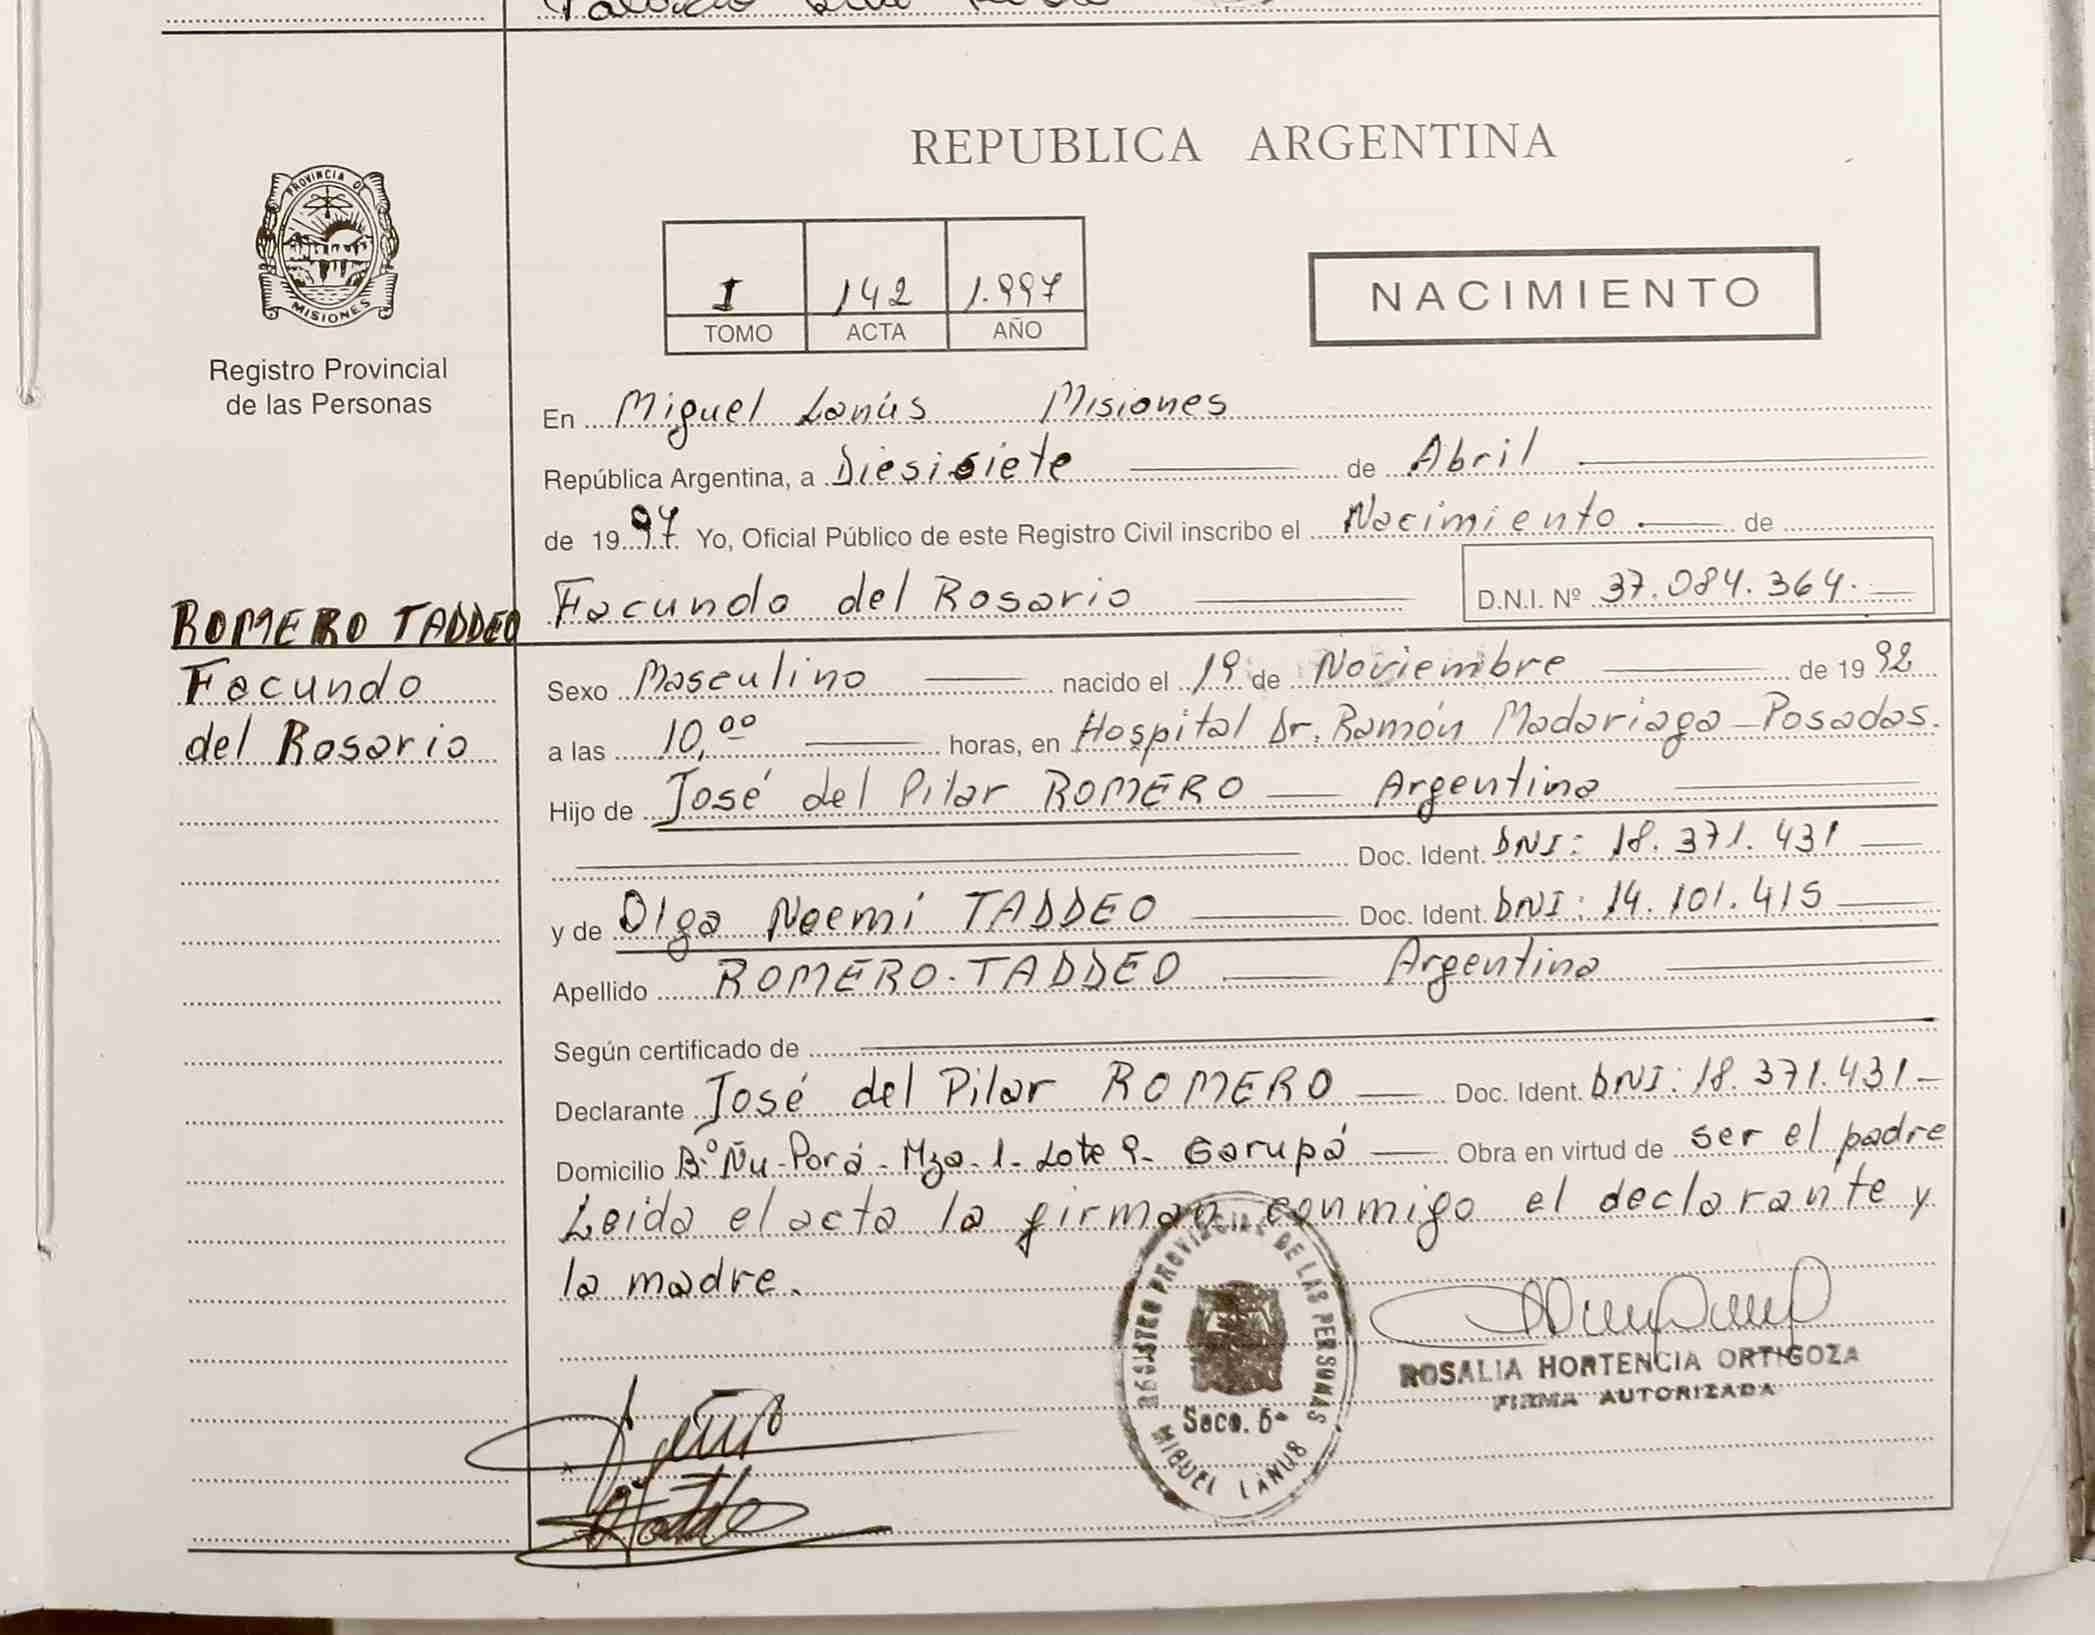 REPUBLICA ARGENTINA
PROVINCIA DE
MISIONES
Registro Provincial
de las Personas
I 142 1.997
TOMO ACTA AÑO
NACIMIENTO
En Miguel Lanús Misiones
República Argentina, a Diesisiete de Abril
de 1997 Yo, Oficial Público de este Registro Civil inscribo el Nacimiento de
Facundo del Rosario D.N.I. Nº 37.084.364.
ROMERO TADDEO
Facundo
del Rosario
Sexo Masculino nacido el 19 de Noviembre de 1992
a las 10,ºº horas, en Hospital Dr. Ramón Madariaga - Posadas.
Hijo de José del Pilar ROMERO Argentino
Doc. Ident. DNI: 18.371.431
y de Olga Noemí TADDEO Doc. Ident. DNI: 14.101.415
Apellido ROMERO-TADDEO Argentina
Según certificado de
Declarante José del Pilar ROMERO Doc. Ident. DNI: 18.371.431
Domicilio Bº Ñu-Porá - Mza. 1 - Lote 9 - Garupá Obra en virtud de ser el padre
Leida el acta la firman conmigo el declarante y
la madre.
REGISTRO PROVINCIAL DE LAS PERSONAS
Secc. 6ª
MIGUEL LANUS
ROSALIA HORTENCIA ORTIGOZA
FIRMA AUTORIZADA